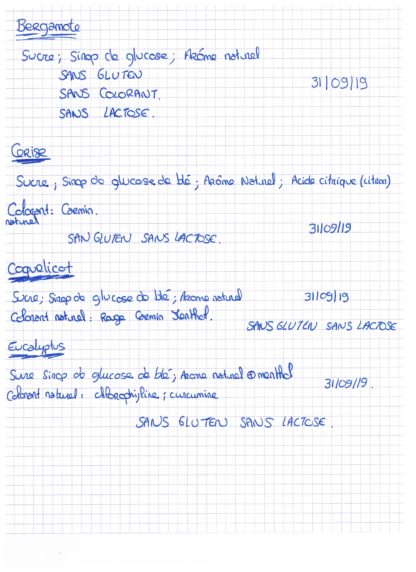 Bergamote
Sucre ; Sirop de glucose ; Arôme naturel
SANS GLUTEN
31/09/19
SANS COLORANT.
SANS LACTOSE.
Cerise
Sucre ; Sirop de glucose de blé ; Arôme Naturel ; Acide citrique (citron)
Colorant : Carmin.
naturel
31/09/19
SAN GLUTEN SANS LACTOSE.
Coquelicot
Sucre ; Sirop de glucose de blé ; Arome naturel 31/09/19
Colorant naturel : Rouge Carmin
SANS GLUTEN SANS LACTOSE
Eucalyptus
Sucre Sirop de glucose de blé ; Arome naturel menthol
31/09/19.
Colorant naturel : chlorophylline ; curcumine
SANS GLUTEN SANS LACTOSE.